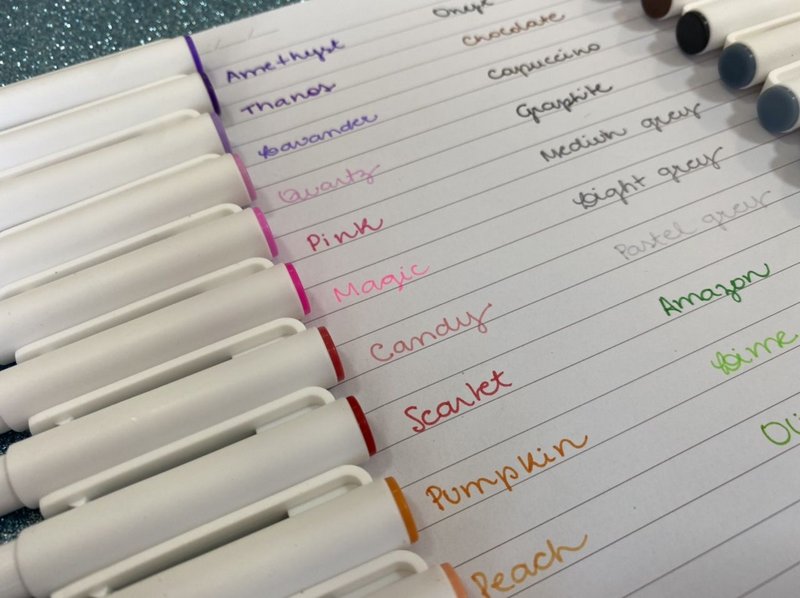 Amethyst
Thanos
Lavander
Quartz
Pink
Magic
Candy
Scarlet
Pumpkin
Peach
Chocolate
Capuccino
Graphite
Medium grey
Light grey
Pastel grey
Amazon
Lime
Oli